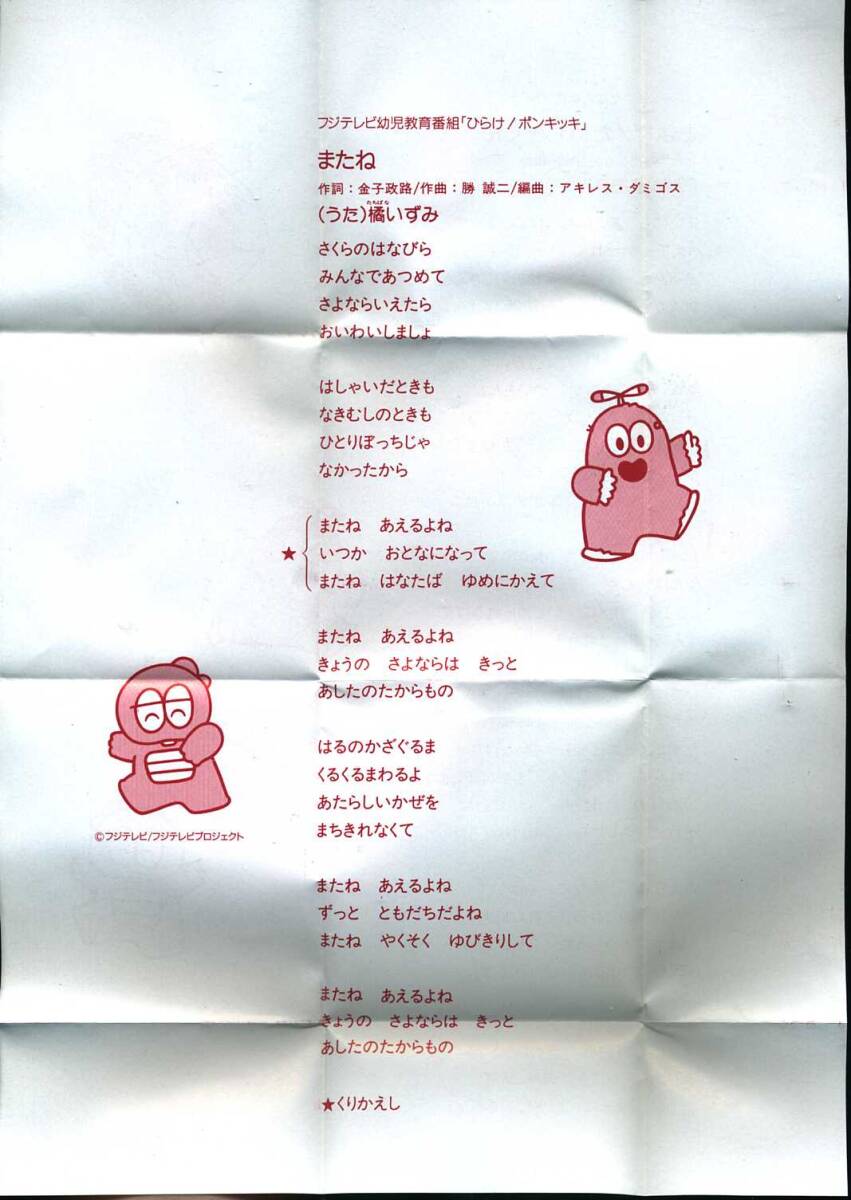 フジテレビ幼児教育番組「ひらけ!ポンキッキ」
またね
作詞:金子政路/作曲:勝 誠二/編曲:アキレス・ダミゴス
(うた)橘いずみ
たちばな
さくらのはなびら
みんなであつめて
さよならいえたら
おいわいしましょ
はしゃいだときも
なきむしのときも
ひとりぼっちじゃ
なかったから
またね あえるよね
★ いつか おとなになって
またね はなたば ゆめにかえて
またね あえるよね
きょうの さよならは きっと
あしたのたからもの
はるのかざぐるま
くるくるまわるよ
あたらしいかぜを
まちきれなくて
©フジテレビ/フジテレビプロジェクト
またね あえるよね
ずっと ともだちだよね
またね やくそく ゆびきりして
またね あえるよね
きょうの さよならは きっと
あしたのたからもの
★くりかえし